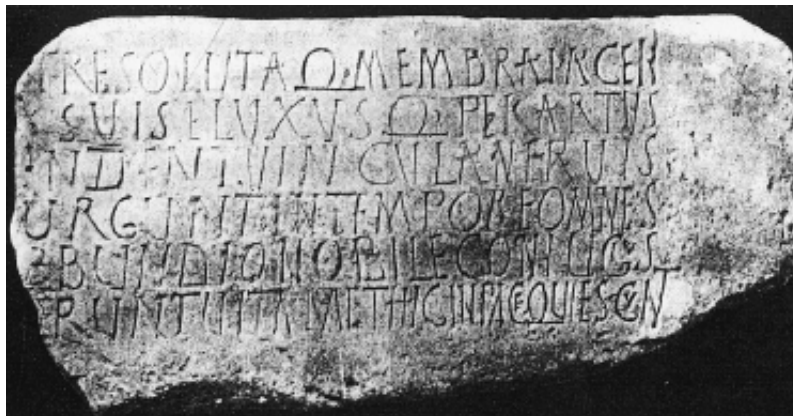 RESOLUTA Q MEMBRA IACEN
SUIS FLUXUS Q PER ARTUS
UINCULA NERUIS
IN TEMPORE OMNES
NOBILE CONIUGES
ERUNT UITAM ET HIC IN PACE QUIESCUNT